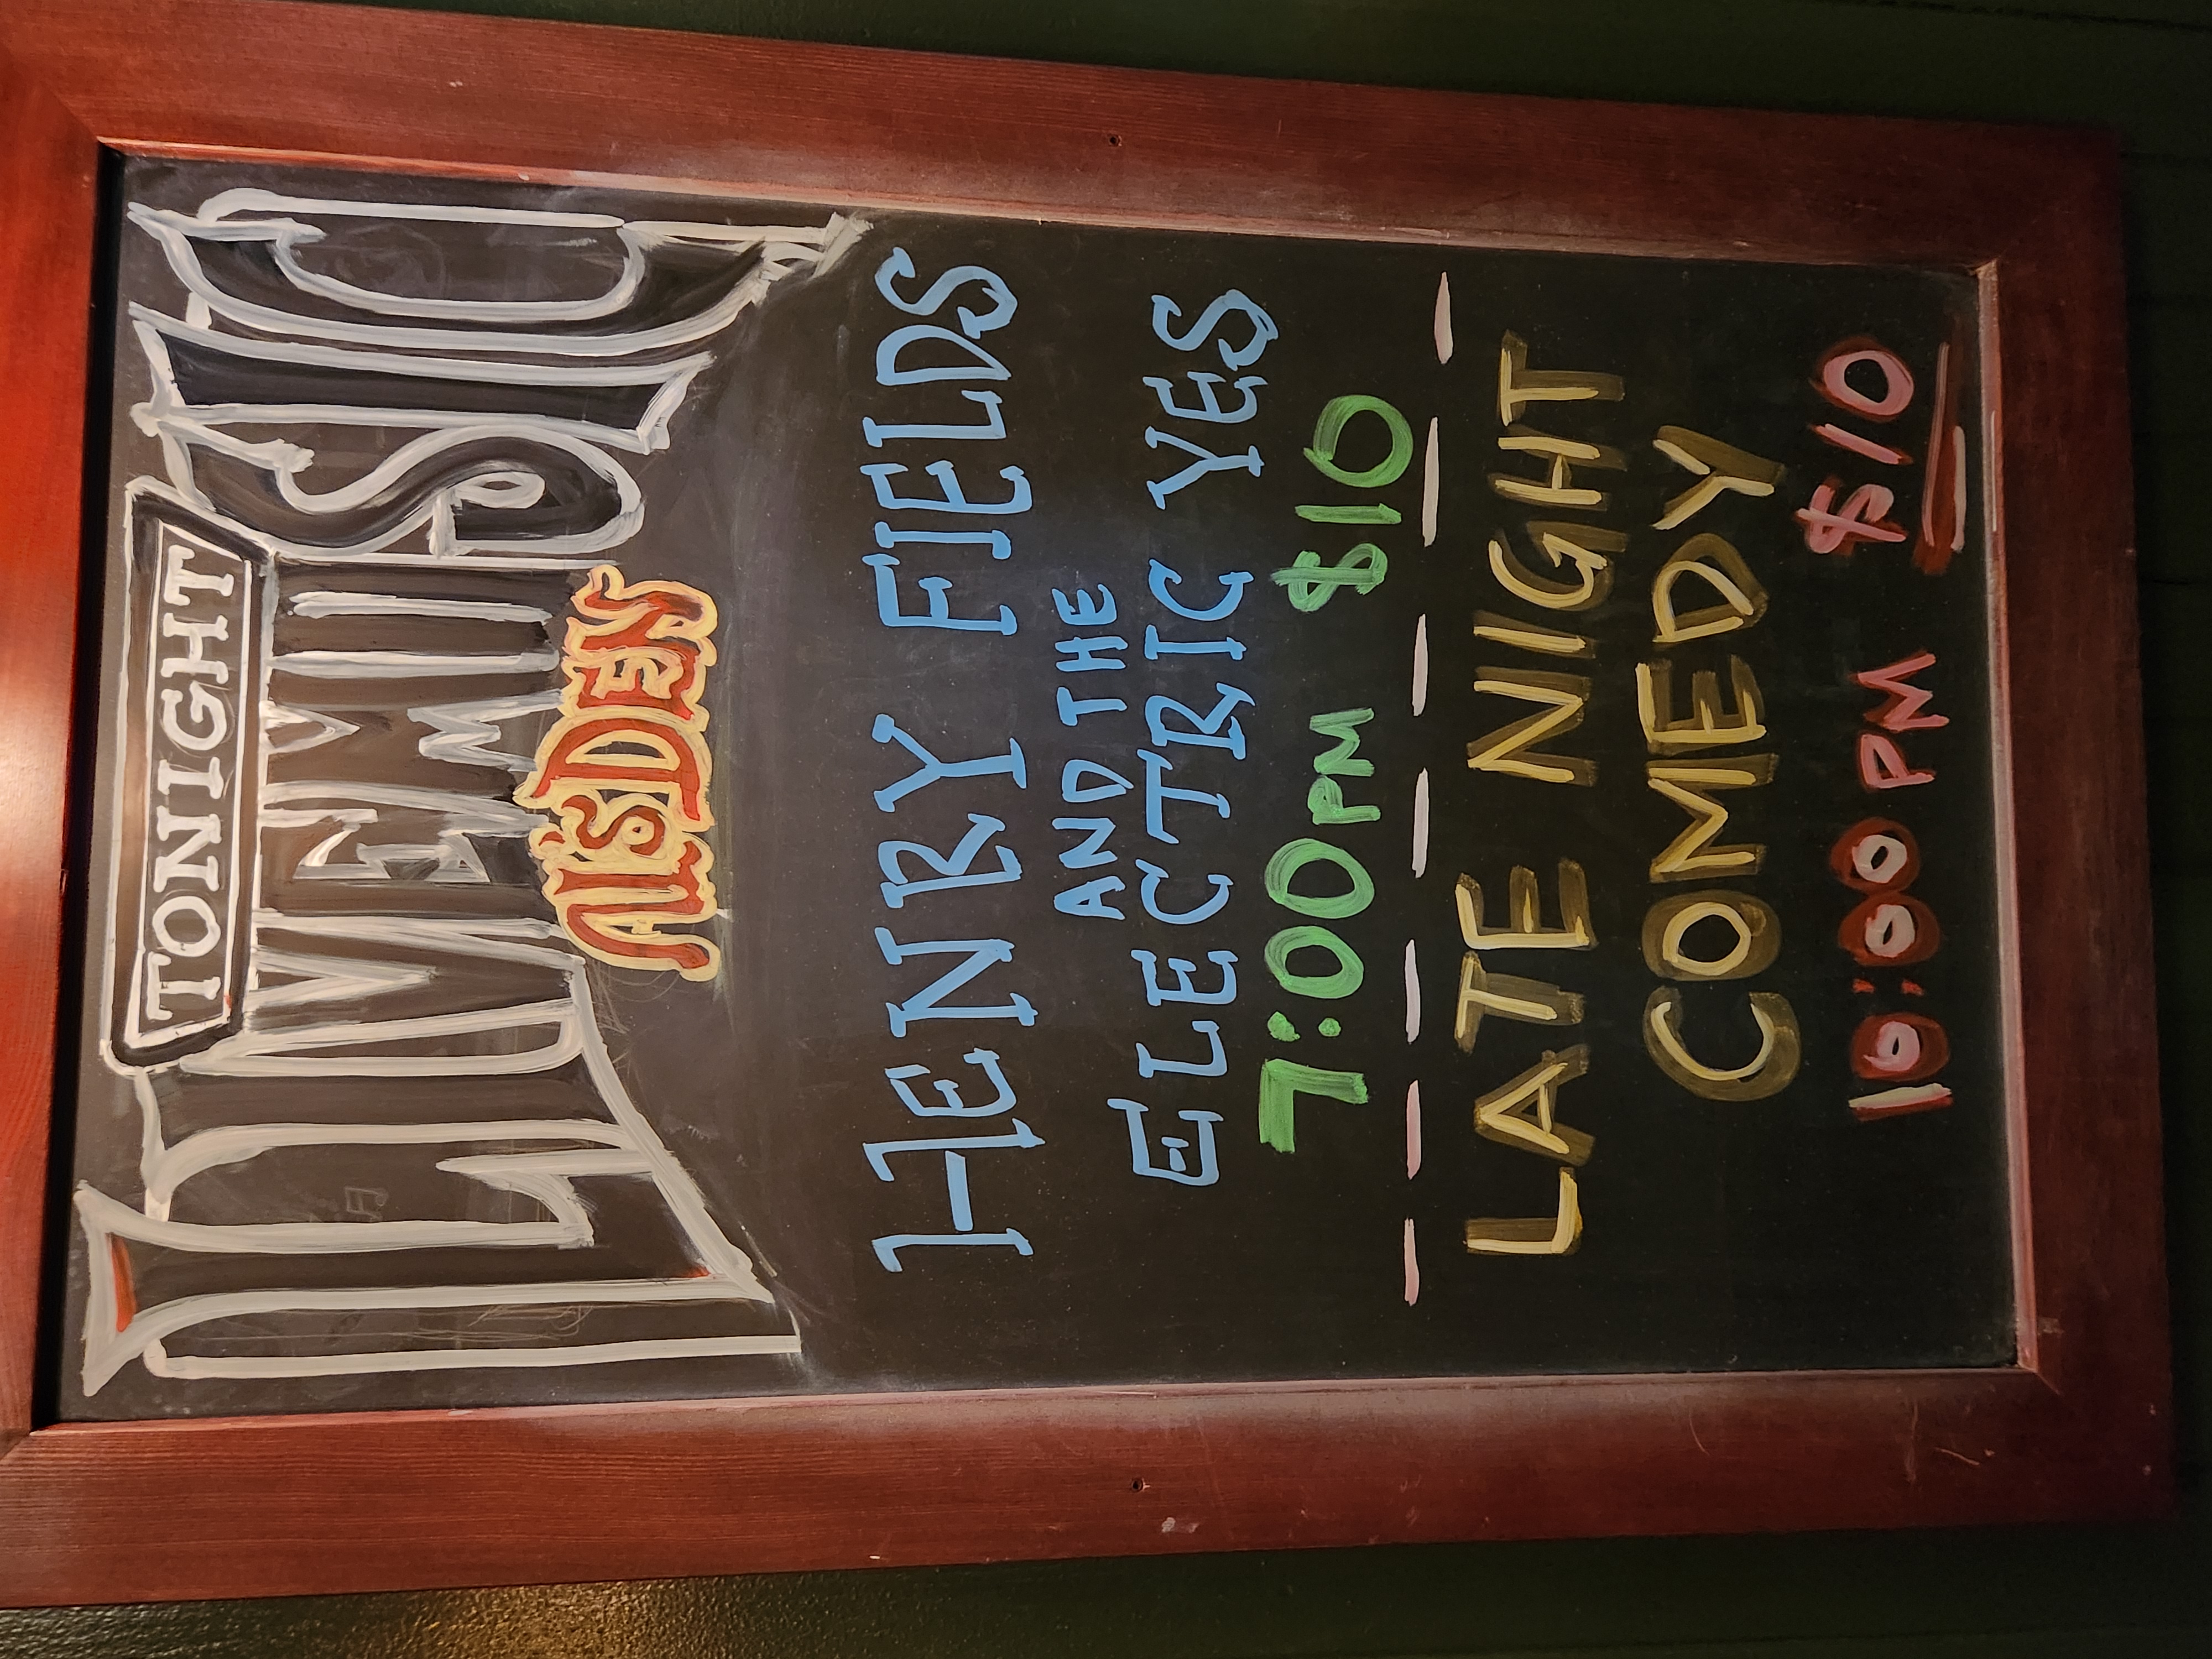 TONIGHT
LIVE MUSIC
AL'S DEN
HENRY FIELDS
AND THE
ELECTRIC YES
7:00PM $10
LATE NIGHT
COMEDY
10:00 PM $10